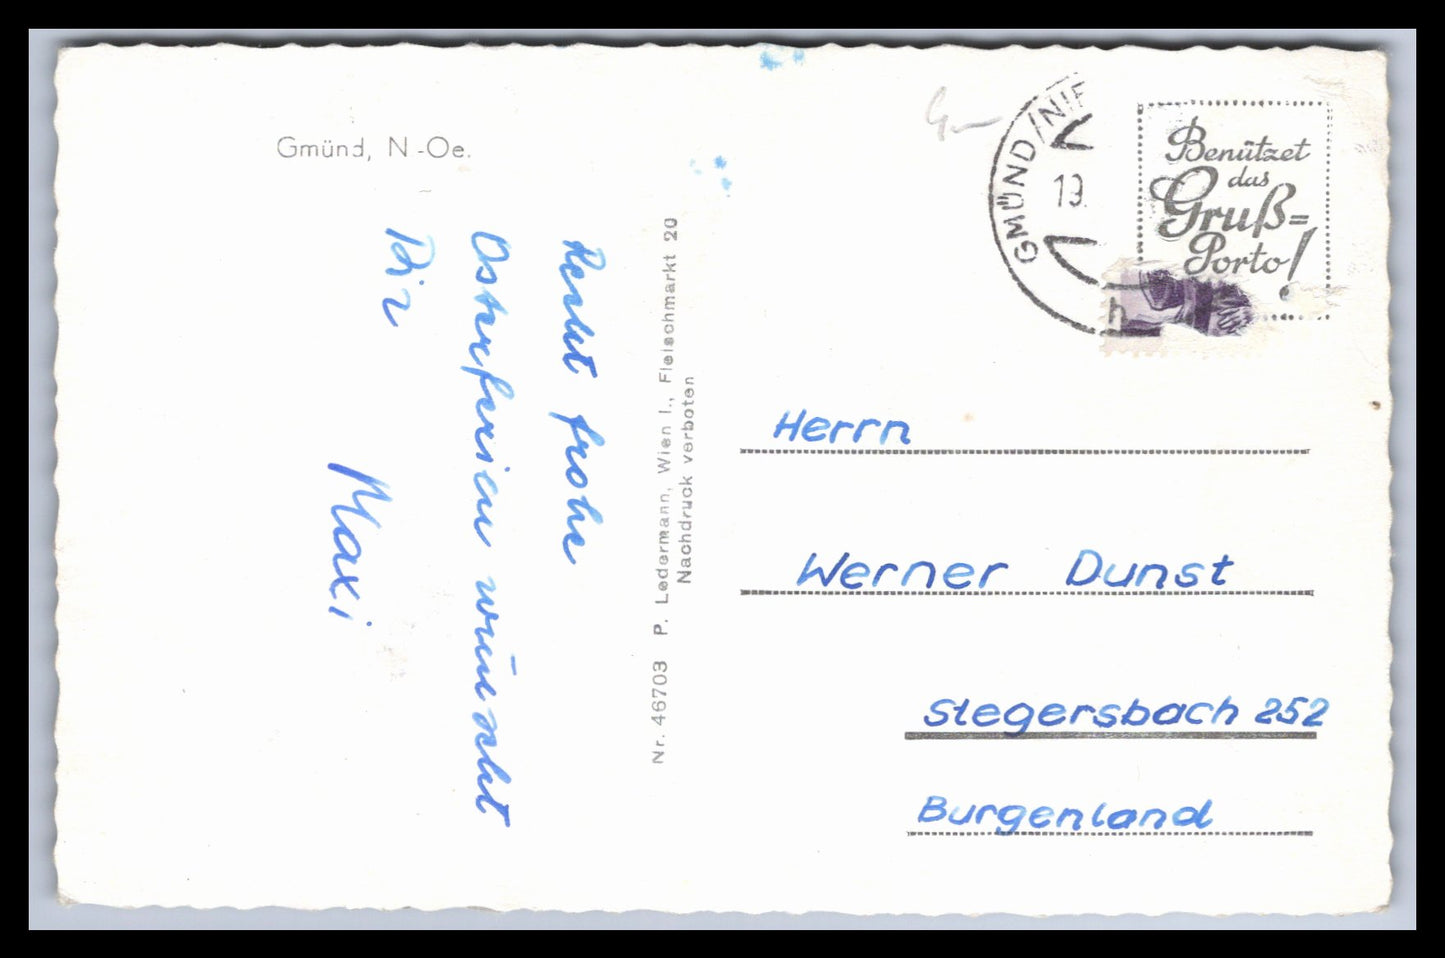 Gmünd, N.-Oe.
Recht frohe
Osterferien wünscht
Dir
Maxi
Nr. 46703 P. Ledermann, Wien I., Fleischmarkt 20
Nachdruck verboten
GMÜND/NIE
19.
h
Benützet
das
Gruß=
Porto!
Herrn
Werner Dunst
Stegersbach 252
Burgenland